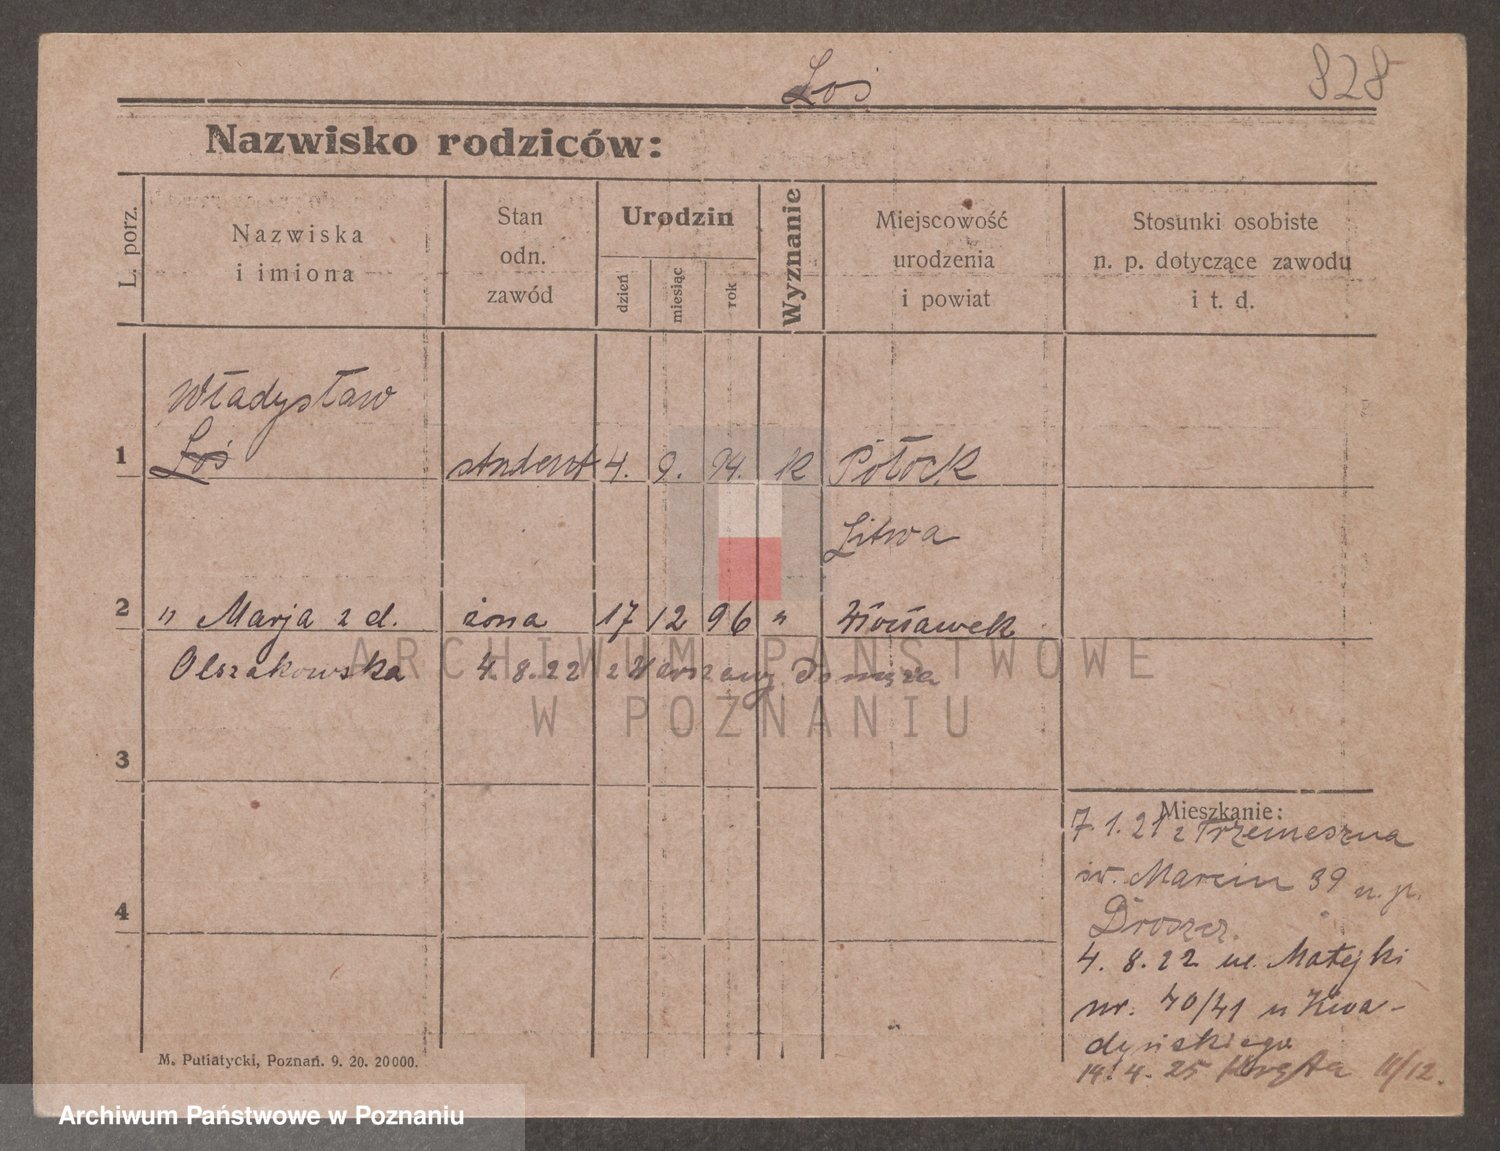 Łoś
828
Nazwisko rodziców:
L. porz.
Nazwiska
i imiona
Stan
odn.
zawód
Urodzin
dzień
miesiąc
rok
Wyznanie
Miejscowość
urodzenia
i powiat
Stosunki osobiste
n. p. dotyczące zawodu
i t. d.
Władysław
1 Łoś student 4. 9. 94. k Połock
Litwa
2 " Marja z d. żona 17 12 96 " Włocławek
Olszakowska 4.8.22 z Warszawy do męża
3
4
Mieszkanie:
7.1.21 z Trzemeszna
św. Marcin 39 u. p.
4. 8. 22 ul. Matejki
nr. 40/41 u Kwa-
dyńskiego
14. 4. 25 Kręta 11/12.
M. Putiatycki, Poznań. 9. 20. 20000.
ARCHIWUM PAŃSTWOWE
W POZNANIU
Archiwum Państwowe w Poznaniu